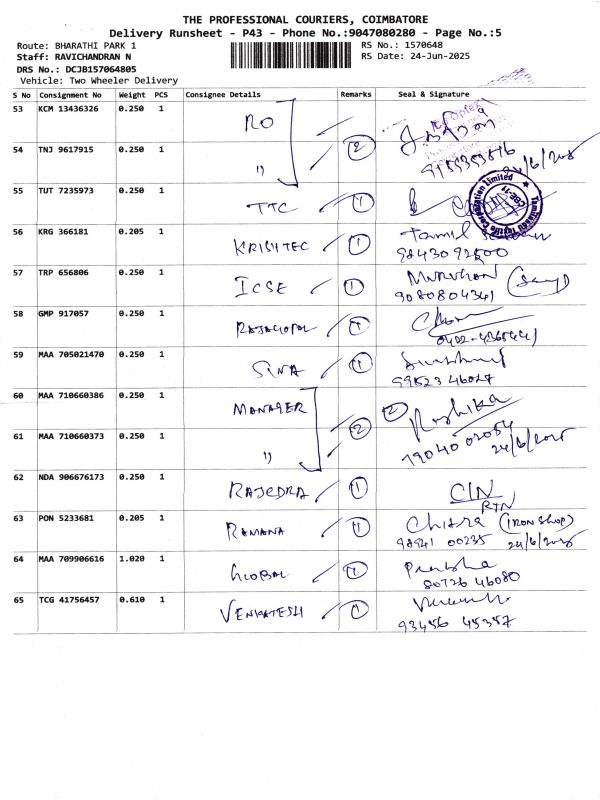 THE PROFESSIONAL COURIERS, COIMBATORE
Delivery Runsheet - P43 - Phone No.:9047080280 - Page No.:5
Route: BHARATHI PARK 1
RS No.: 1570648
Staff: RAVICHANDRAN N
RS Date: 24-Jun-2025
DRS No.: DCJB157064805
Vehicle: Two Wheeler Delivery
S No Consignment No Weight PCS Consignee Details Remarks Seal & Signature
53 KCM 13436326 0.250 1 RO
54 TNJ 9617915 0.250 1 " 2
55 TUT 7235973 0.250 1 TTC 1
56 KRG 366181 0.205 1 KRISHTEC 1 Tamil
98430 92500
57 TRP 656806 0.250 1 ICSE 1 MURUGAN
9080804341
58 GMP 917057 0.250 1 RAJAGOPAL 1
59 MAA 705021470 0.250 1 SINA 1
99523 46027
60 MAA 710660386 0.250 1 MANAGER 2 Roshika
61 MAA 710660373 0.250 1 " 2 19040 02054
24/6/2025
62 NDA 906676173 0.250 1 RAJEDRA 1 CIN
RTN
63 PON 5233681 0.205 1 RAMANA 1 Chitra (IRON SHOP)
98941 00235 24/6/2025
64 MAA 709906616 1.020 1 GLOBAL 1 Prabha
80726 46080
65 TCG 41756457 0.610 1 VENKATESH 1
93456 45357